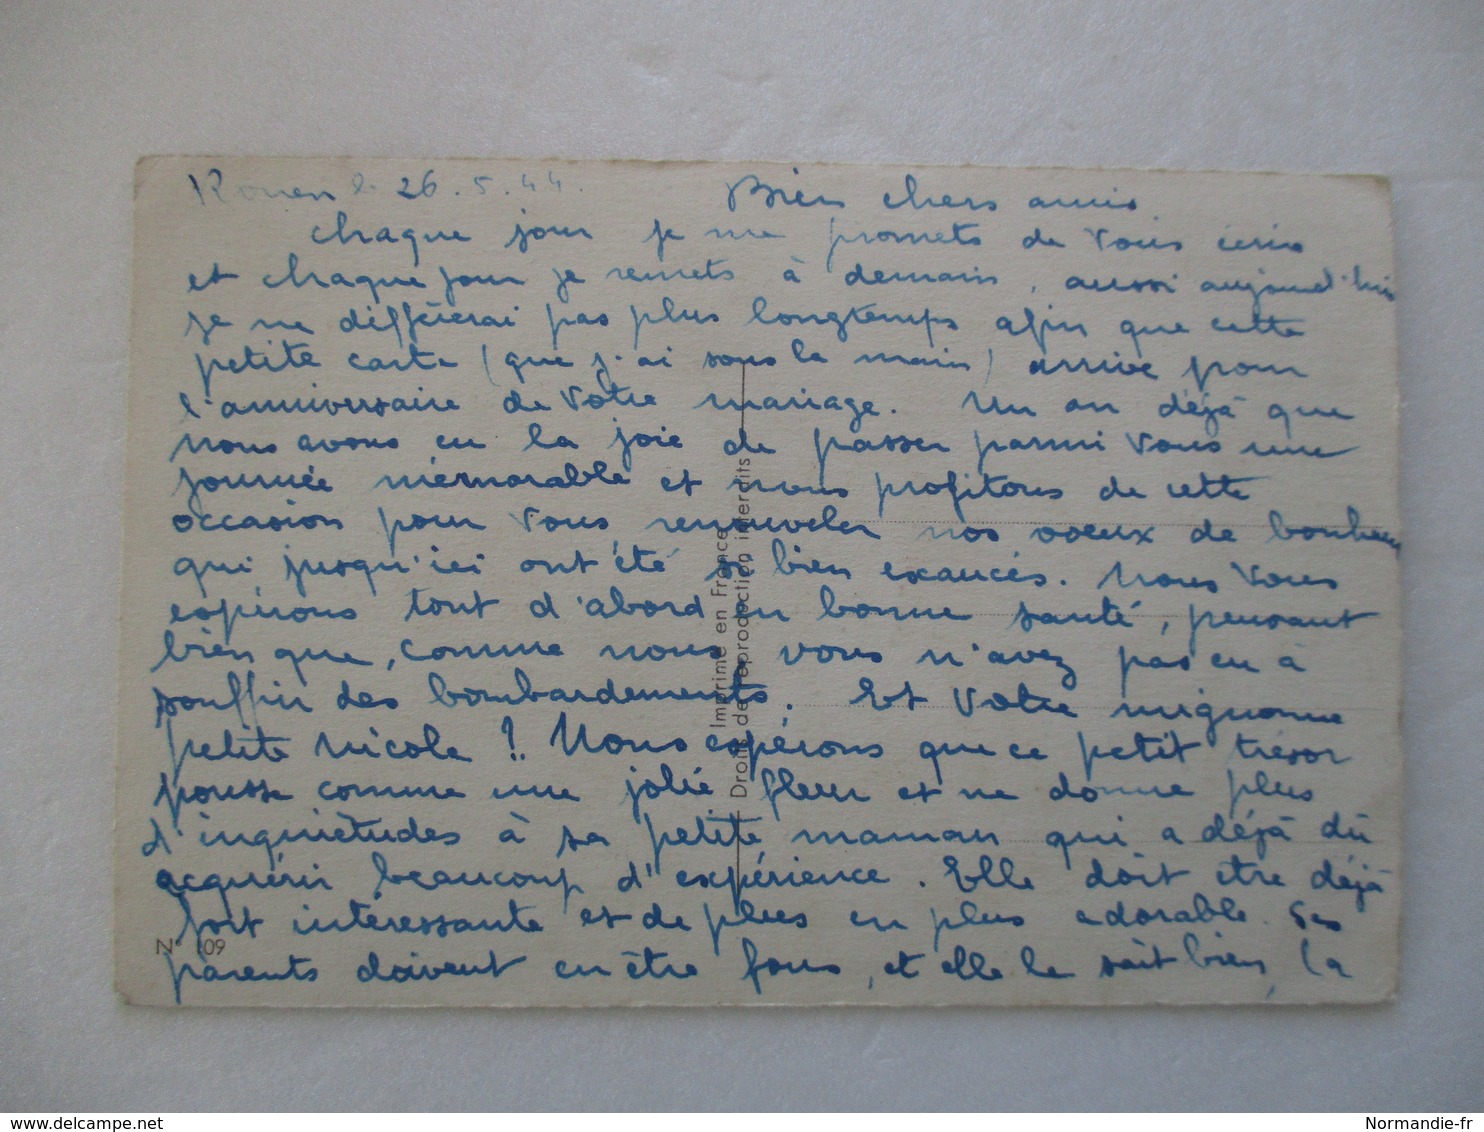 Rouen le 26.5.44. Bien chers amis
Chaque jour je me promets de vous écrire
et chaque jour je remets à demain, aussi aujourd'hui
je ne différerai pas plus longtemps afin que cette
petite carte (que j'ai sous la main) arrive pour
l'anniversaire de votre mariage. Un an déjà que
nous avons eu la joie de passer parmi vous une
journée mémorable et nous profitons de cette
occasion pour vous renouveler nos voeux de bonheur
qui jusqu'ici ont été si bien exaucés. Nous vous
espérons tout d'abord en bonne santé, pensant
bien que, comme nous, vous n'avez pas eu à
souffrir des bombardements. Et votre mignonne
petite Nicole ?. Nous espérons que ce petit trésor
pousse comme une jolie fleur et ne donne plus
d'inquiétudes à sa petite maman qui a déjà dû
acquérir beaucoup d'expérience. Elle doit être déjà
fort intéressante et de plus en plus adorable. Ses
parents doivent en être fous, et elle le sait bien, la
Imprimé en France
Droits de reproduction interdits
N° 109
Normandie-fr